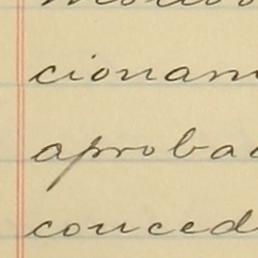 cionam
aproba
conced